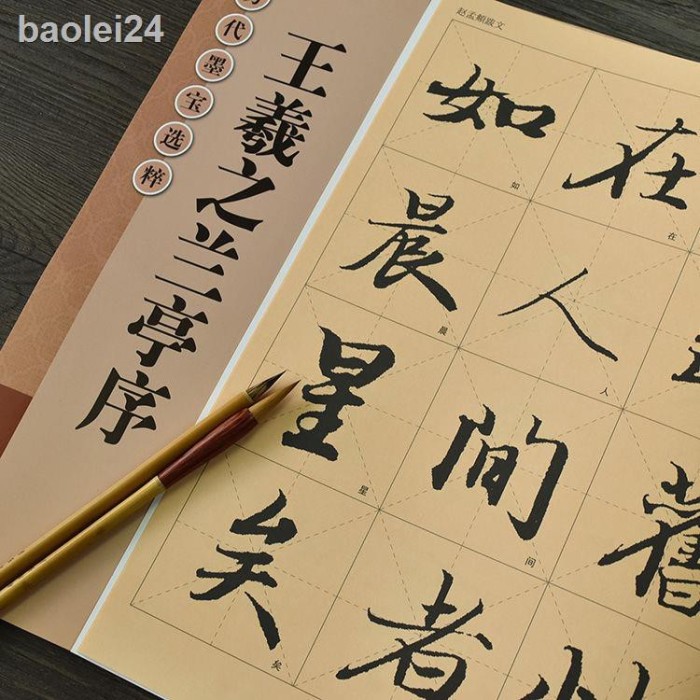 baolei24
代墨宝选粹
王羲之兰亭序
赵孟頫跋文
在人間者
如晨星矣
在
人
间
如
晨
星
矣
舊